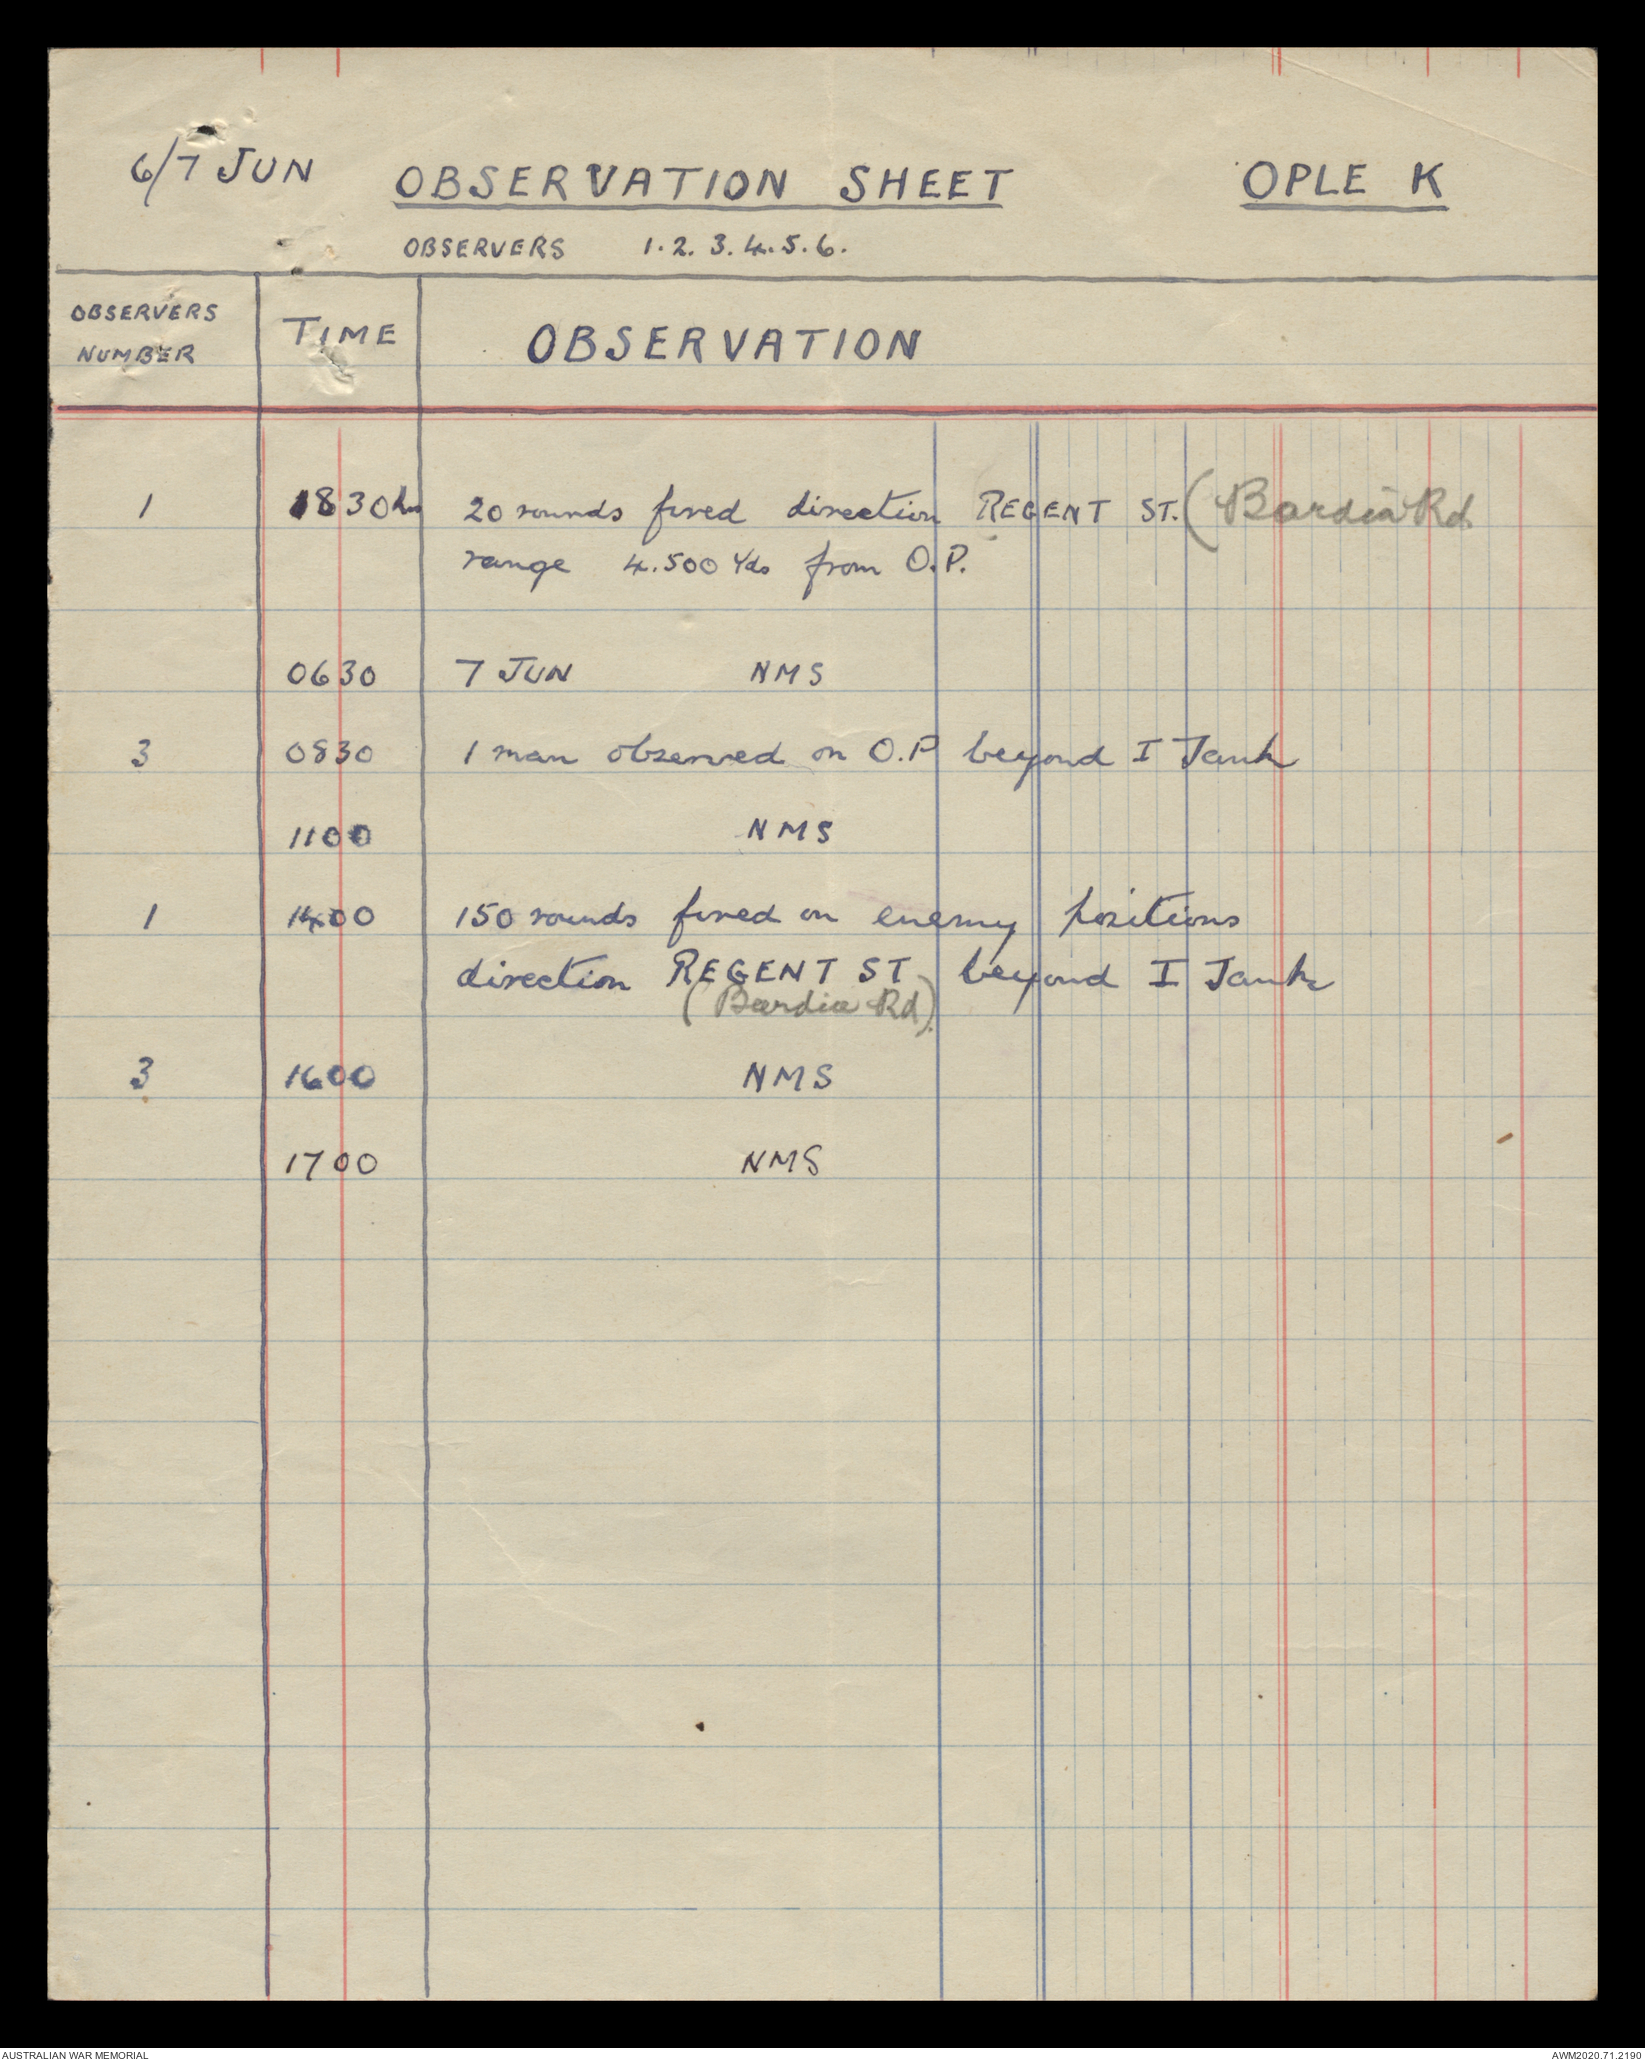 6/7 JUN OBSERVATION SHEET OPLE K
OBSERVERS 1. 2. 3. 4. 5. 6.
OBSERVERS NUMBER TIME OBSERVATION
1 1830 hrs 20 rounds fired direction REGENT ST. (Bardia Rd
range 4.500 Yds from O.P.
0630 7 JUN NMS
3 0830 1 man observed on O.P beyond I Tank
1100 NMS
1 1400 150 rounds fired on enemy positions
direction REGENT ST beyond I Tank
(Bardia Rd).
3 1600 NMS
1700 NMS
AUSTRALIAN WAR MEMORIAL AWM2020.71.2190